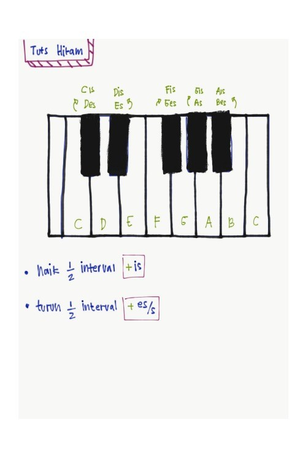 Tuts Hitam
Cis Dis Fis Gis Ais
Des Es Ges As Bes
C D E F G A B C
• naik 1/2 interval +is
• turun 1/2 interval + es/s